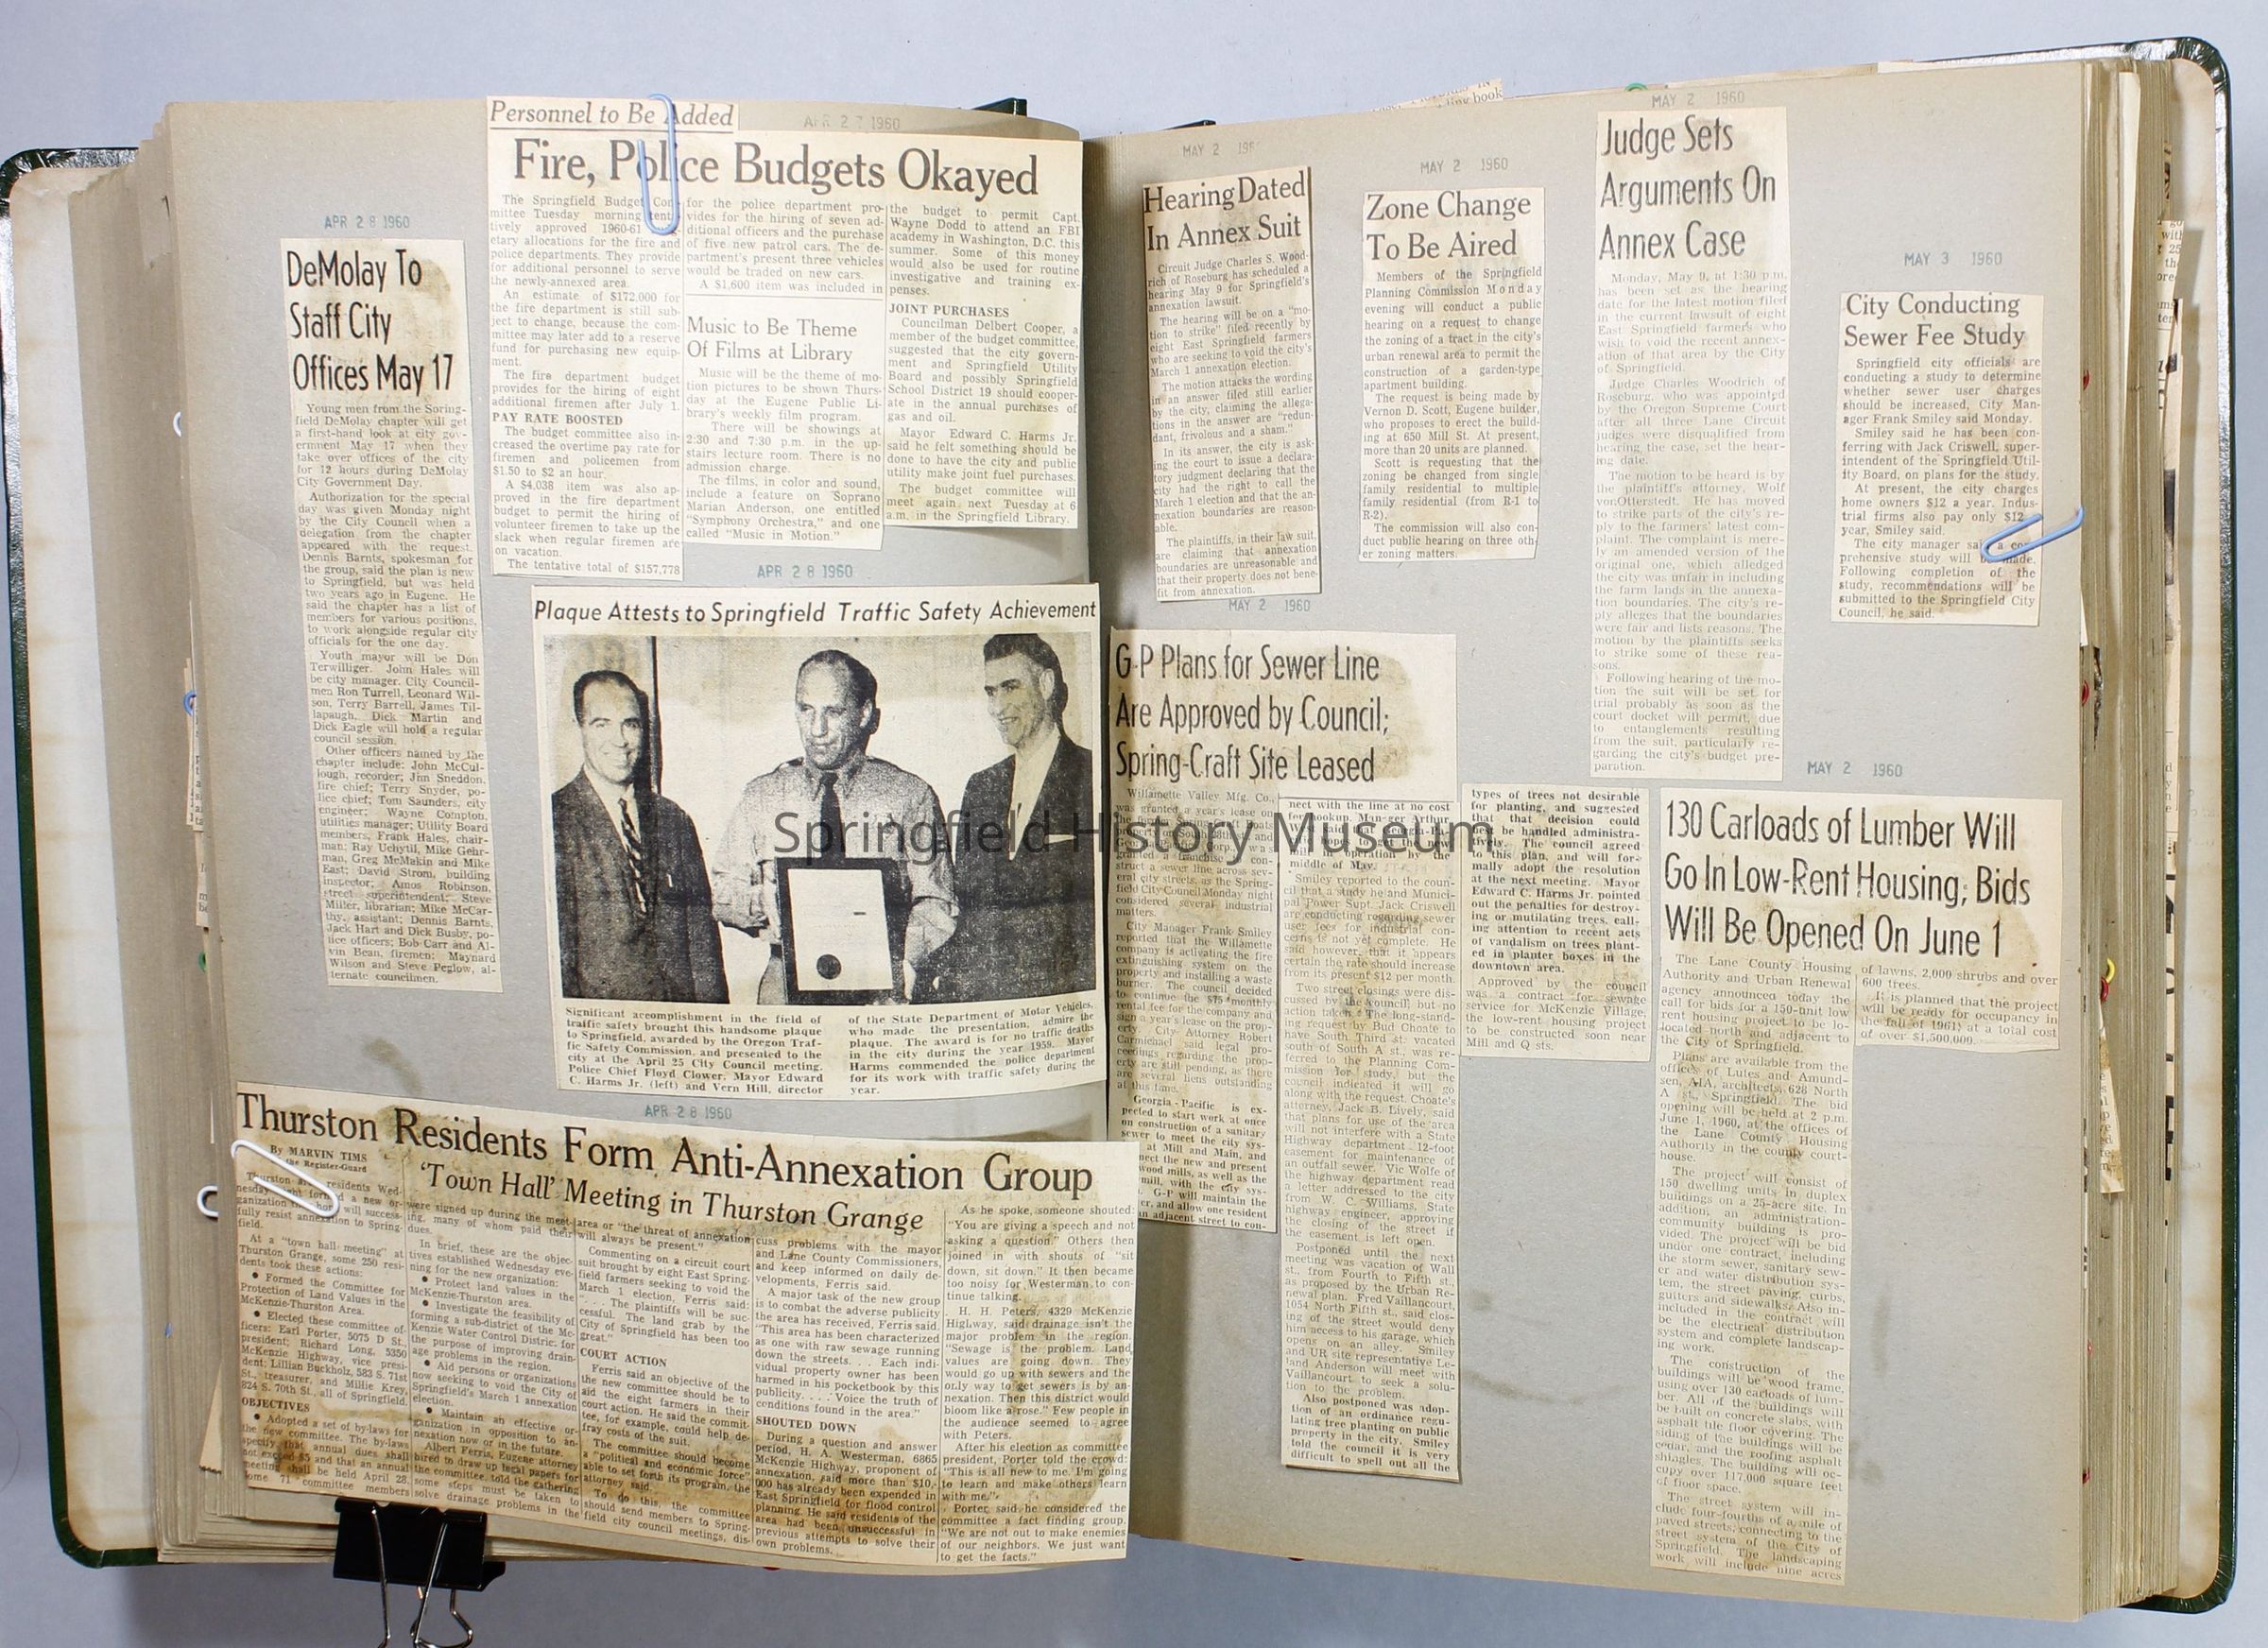 APR 28 1960
DeMolay To
Staff City
Offices May 17
Young men from the Spring-
field DeMolay chapter will get
a first-hand look at city gov-
ernment May 17 when they
take over offices of the city
for 12 hours during DeMolay
City Government Day.
Authorization for the special
day was given Monday night
by the City Council when a
delegation from the chapter
appeared with the request.
Dennis Barnts, spokesman for
the group, said the plan is new
to Springfield, but was held
two years ago in Eugene. He
said the chapter has a list of
members for various positions,
to work alongside regular city
officials for the one day.
Youth mayor will be Don
Terwilliger. John Hales will
be city manager. City Council-
men Ron Turrell, Leonard Wil-
son, Terry Barrell, James Til-
lapaugh, Dick Martin and
Dick Eagle will hold a regular
council session.
Other officers named by the
chapter include: John McCul-
lough, recorder; Jim Sneddon,
fire chief; Terry Snyder, po-
lice chief; Tom Saunders, city
engineer; Wayne Compton,
utilities manager; Utility Board
members, Frank Hales, chair-
man; Ray Uchytil, Mike Gehr-
man, Greg McMakin and Mike
East; David Strom, building
inspector; Amos Robinson,
street superintendent; Steve
Miller, librarian; Mike McCar-
thy, assistant; Dennis Barnts,
Jack Hart and Dick Busby, po-
lice officers; Bob Carr and Al-
vin Bean, firemen; Maynard
Wilson and Steve Peglow, al-
ternate councilmen.
Personnel to Be Added
APR 27 1960
Fire, Police Budgets Okayed
The Springfield Budget Com-
mittee Tuesday morning tenta-
tively approved 1960-61
etary allocations for the fire and
police departments. They provide
for additional personnel to serve
the newly-annexed area.
An estimate of $172,000 for
the fire department is still sub-
ject to change, because the com-
mittee may later add to a reserve
fund for purchasing new equip-
ment.
The fire department budget
provides for the hiring of eight
additional firemen after July 1.
PAY RATE BOOSTED
The budget committee also in-
creased the overtime pay rate for
firemen and policemen from
$1.50 to $2 an hour.
A $4,038 item was also ap-
proved in the fire department
budget to permit the hiring of
volunteer firemen to take up the
slack when regular firemen are
on vacation.
The tentative total of $157,778
for the police department pro-
vides for the hiring of seven ad-
ditional officers and the purchase
of five new patrol cars. The de-
partment's present three vehicles
would be traded on new cars.
A $1,600 item was included in
the budget to permit Capt.
Wayne Dodd to attend an FBI
academy in Washington, D.C. this
summer. Some of this money
would also be used for routine
investigative and training ex-
penses.
JOINT PURCHASES
Councilman Delbert Cooper, a
member of the budget committee,
suggested that the city govern-
ment and Springfield Utility
Board and possibly Springfield
School District 19 should cooper-
ate in the annual purchases of
gas and oil.
Mayor Edward C. Harms Jr.
said he felt something should be
done to have the city and public
utility make joint fuel purchases.
The budget committee will
meet again next Tuesday at 6
a.m. in the Springfield Library.
Music to Be Theme
Of Films at Library
Music will be the theme of mo-
tion pictures to be shown Thurs-
day at the Eugene Public Li-
brary's weekly film program.
There will be showings at
2:30 and 7:30 p.m. in the up-
stairs lecture room. There is no
admission charge.
The films, in color and sound,
include a feature on Soprano
Marian Anderson, one entitled
"Symphony Orchestra," and one
called "Music in Motion."
APR 28 1960
Plaque Attests to Springfield Traffic Safety Achievement
Significant accomplishment in the field of
traffic safety brought this handsome plaque
to Springfield, awarded by the Oregon Traf-
fic Safety Commission, and presented to the
city at the April 25 City Council meeting.
Police Chief Floyd Clower, Mayor Edward
C. Harms Jr. (left) and Vern Hill, director
of the State Department of Motor Vehicles,
who made the presentation, admire the
plaque. The award is for no traffic deaths
in the city during the year 1959. Mayor
Harms commended the police department
for its work with traffic safety during the
year.
APR 28 1960
Thurston Residents Form Anti-Annexation Group
'Town Hall' Meeting in Thurston Grange
By MARVIN TIMS
the Register-Guard
Thurston area residents Wed-
nesday night formed a new or-
ganization
fully resist annexation to Spring-
field.
At a "town hall meeting" at
Thurston Grange, some 250 resi-
dents took these actions:
• Formed the Committee for
Protection of Land Values in the
McKenzie-Thurston Area.
• Elected these committee of-
ficers: Earl Porter, 5075 D St.
president; Richard Long, 5350
McKenzie Highway, vice presi-
dent; Lillian Buckholz, 583 S. 71st
St., treasurer, and Millie Krey,
824 S. 70th St., all of Springfield.
OBJECTIVES
• Adopted a set of by-laws for
the new committee. The by-laws
specify that annual dues shall
not exceed $5 and that an annual
meeting shall be held April 28.
Some 71 committee members
were signed up during the meet-
ing, many of whom paid their
dues.
In brief, these are the objec-
tives established Wednesday eve-
ning for the new organization:
• Protect land values in the
McKenzie-Thurston area.
• Investigate the feasibility of
forming a sub-district of the Mc-
Kenzie Water Control District for
the purpose of improving drain-
age problems in the region.
• Aid persons or organizations
now seeking to void the City of
Springfield's March 1 annexation
election.
• Maintain an effective or-
ganization in opposition to an-
nexation now or in the future.
Albert Ferris, Eugene attorney
hired to draw up legal papers for
the committee, told the gathering
some steps must be taken to
solve drainage problems in the
area or "the threat of annexation
will always be present."
Commenting on a circuit court
suit brought by eight East Spring-
field farmers seeking to void the
March 1 election, Ferris said:
". . . The plaintiffs will be suc-
cessful. The land grab by the
City of Springfield has been too
great."
COURT ACTION
Ferris said an objective of the
the new committee should be to
aid the eight farmers in their
court action. He said the commit-
tee, for example, could help de-
fray costs of the suit.
The committee should become
a "political and economic force"
able to set forth its program, the
attorney said.
To do this, the committee
should send members to Spring-
field city council meetings, dis-
cuss problems with the mayor
and Lane County Commissioners,
and keep informed on daily de-
velopments, Ferris said.
A major task of the new group
is to combat the adverse publicity
the area has received, Ferris said.
"This area has been characterized
as one with raw sewage running
down the streets. . . Each indi-
vidual property owner has been
harmed in his pocketbook by this
publicity. . . . Voice the truth of
conditions found in the area."
SHOUTED DOWN
During a question and answer
period, H. A. Westerman, 6865
McKenzie Highway, proponent of
annexation, said more than $10,-
000 has already been expended in
East Springfield for flood control
planning. He said residents of the
area had been unsuccessful in
previous attempts to solve their
own problems.
As he spoke, someone shouted:
"You are giving a speech and not
asking a question." Others then
joined in with shouts of "sit
down, sit down." It then became
too noisy for Westerman to con-
tinue talking.
H. H. Peters, 4329 McKenzie
Highway, said drainage isn't the
major problem in the region.
"Sewage is the problem. Land
values are going down. They
would go up with sewers and the
only way to get sewers is by an-
nexation. Then this district would
bloom like a rose." Few people in
the audience seemed to agree
with Peters.
After his election as committee
president, Porter told the crowd:
"This is all new to me. I'm going
to learn and make others learn
with me."
Porter said he considered the
committee a fact finding group.
"We are not out to make enemies
of our neighbors. We just want
to get the facts."
MAY 2 196
Hearing Dated
In Annex Suit
Circuit Judge Charles S. Wood-
rich of Roseburg has scheduled a
hearing May 9 for Springfield's
annexation lawsuit.
The hearing will be on a "mo-
tion to strike" filed recently by
eight East Springfield farmers
who are seeking to void the city's
March 1 annexation election.
The motion attacks the wording
in an answer filed still earlier
by the city, claiming the allega-
tions in the answer are "redun-
dant, frivolous and a sham."
In its answer, the city is ask-
ing the court to issue a declara-
tory judgment declaring that the
city had the right to call the
March 1 election and that the an-
nexation boundaries are reason-
able.
The plaintiffs, in their law suit,
are claiming that annexation
boundaries are unreasonable and
that their property does not bene-
fit from annexation.
MAY 2 1960
Zone Change
To Be Aired
Members of the Springfield
Planning Commission Monday
evening will conduct a public
hearing on a request to change
the zoning of a tract in the city's
urban renewal area to permit the
construction of a garden-type
apartment building.
The request is being made by
Vernon D. Scott, Eugene builder,
who proposes to erect the build-
ing at 650 Mill St. At present,
more than 20 units are planned.
Scott is requesting that the
zoning be changed from single
family residential to multiple
family residential (from R-1 to
R-2).
The commission will also con-
duct public hearing on three oth-
er zoning matters.
MAY 2 1960
Judge Sets
Arguments On
Annex Case
Monday, May 9, at 1:30 p.m.
has been set as the hearing
date for the latest motion filed
in the current lawsuit of eight
East Springfield farmers who
wish to void the recent annex-
ation of that area by the City
of Springfield.
Judge Charles Woodrich of
Roseburg, who was appointed
by the Oregon Supreme Court
after all three Lane Circuit
judges were disqualified from
hearing the case, set the hear-
ing date.
The motion to be heard is by
the plaintiffs' attorney, Wolf
von Otterstedt. He has moved
to strike parts of the city's re-
ply to the farmers' latest com-
plaint. The complaint is mere-
ly an amended version of the
original one, which alledged
the city was unfair in including
the farm lands in the annexa-
tion boundaries. The city's re-
ply alleges that the boundaries
were fair and lists reasons. The
motion by the plaintiffs seeks
to strike some of these rea-
sons.
Following hearing of the mo-
tion the suit will be set for
trial probably as soon as the
court docket will permit, due
to entanglements resulting
from the suit, particularly re-
garding the city's budget pre-
paration.
MAY 3 1960
City Conducting
Sewer Fee Study
Springfield city officials are
conducting a study to determine
whether sewer user charges
should be increased, City Man-
ager Frank Smiley said Monday.
Smiley said he has been con-
ferring with Jack Criswell, super-
intendent of the Springfield Util-
ity Board, on plans for the study.
At present, the city charges
home owners $12 a year. Indus-
trial firms also pay only $12
year, Smiley said.
The city manager said a com-
prehensive study will be made.
Following completion of the
study, recommendations will be
submitted to the Springfield City
Council, he said.
MAY 2 1960
G-P Plans for Sewer Line
Are Approved by Council;
Spring-Craft Site Leased
Willamette Valley Mfg. Co.,
was granted a year's lease on
granted a franchise to con-
struct a sewer line across sev-
eral city streets, as the Spring-
field City Council Monday night
considered several industrial
matters.
City Manager Frank Smiley
reported that the Willamette
company is activating the fire
extinguishing system on the
property and installing a waste
burner. The council decided
to continue the $75 monthly
rental fee for the company and
sign a year's lease on the prop-
erty. City Attorney Robert
Carmichael said legal pro-
ceedings regarding the prop-
erty are still pending, as there
are several liens outstanding
at this time.
Georgia-Pacific is ex-
pected to start work at once
on construction of a sanitary
sewer to meet the city sys-
at Mill and Main, and
nect the new and present
wood mills, as well as the
mill, with the city sys-
G-P will maintain the
er, and allow one resident
n adjacent street to con-
nect with the line at no cost
for hookup. Manager Arthur
in operation by the
middle of May.
Smiley reported to the coun-
cil that a study he and Munici-
pal Power Supt. Jack Criswell
are conducting regarding sewer
user fees for industrial con-
cerns is not yet complete. He
said however, that it appears
certain the rate should increase
from its present $12 per month.
Two street closings were dis-
cussed by the council, but no
action taken. The long-stand-
ing request by Bud Choate to
have South Third st. vacated
south of South A st., was re-
ferred to the Planning Com-
mission for study, but the
council indicated it will go
along with the request. Choate's
attorney, Jack B. Lively, said
that plans for use of the area
will not interfere with a State
Highway department 12-foot
easement for maintenance of
an outfall sewer. Vic Wolfe of
the highway department read
a letter addressed to the city
from W. C. Williams, State
highway engineer, approving
the closing of the street if
the easement is left open.
Postponed until the next
meeting was vacation of Wall
st., from Fourth to Fifth st.,
as proposed by the Urban Re-
newal plan. Fred Vaillancourt,
1054 North Fifth st., said clos-
ing of the street would deny
him access to his garage, which
opens on an alley. Smiley
and UR site representative Le-
land Anderson will meet with
Vaillancourt to seek a solu-
tion to the problem.
Also postponed was adop-
tion of an ordinance regu-
lating tree planting on public
property in the city. Smiley
told the council it is very
difficult to spell out all the
types of trees not desirable
for planting, and suggested
that that decision could
best be handled administra-
tively. The council agreed
to this plan, and will for-
mally adopt the resolution
at the next meeting. Mayor
Edward C. Harms Jr. pointed
out the penalties for destroy-
ing or mutilating trees, call-
ing attention to recent acts
of vandalism on trees plant-
ed in planter boxes in the
downtown area.
Approved by the council
was a contract for sewage
service for McKenzie Village,
the low-rent housing project
to be constructed soon near
Mill and Q sts.
MAY 2 1960
130 Carloads of Lumber Will
Go In Low-Rent Housing; Bids
Will Be Opened On June 1
The Lane County Housing
Authority and Urban Renewal
agency announced today the
call for bids for a 150-unit low
rent housing project to be lo-
cated north and adjacent to
the City of Springfield.
Plans are available from the
offices of Lutes and Amund-
sen, AIA, architects, 628 North
A st., Springfield. The bid
opening will be held at 2 p.m.
June 1, 1960, at the offices of
the Lane County Housing
Authority in the county court-
house.
The project will consist of
150 dwelling units in duplex
buildings on a 25-acre site. In
addition, an administration-
community building is pro-
vided. The project will be bid
under one contract, including
the storm sewer, sanitary sew-
er and water distribution sys-
tem, the street paving, curbs,
gutters and sidewalks. Also in-
cluded in the contract will
be the electrical distribution
system and complete landscap-
ing work.
The construction of the
buildings will be wood frame,
using over 130 carloads of lum-
ber. All of the buildings will
be built on concrete slabs, with
asphalt tile floor covering. The
siding of the buildings will be
cedar, and the roofing asphalt
shingles. The building will oc-
cupy over 117,000 square feet
of floor space.
The street system will in-
clude four-fourths of a mile of
paved streets, connecting to the
street system of the City of
Springfield. The landscaping
work will include nine acres
of lawns, 2,000 shrubs and over
600 trees.
It is planned that the project
will be ready for occupancy in
the fall of 1961) at a total cost
of over $1,500,000.
Springfield History Museum